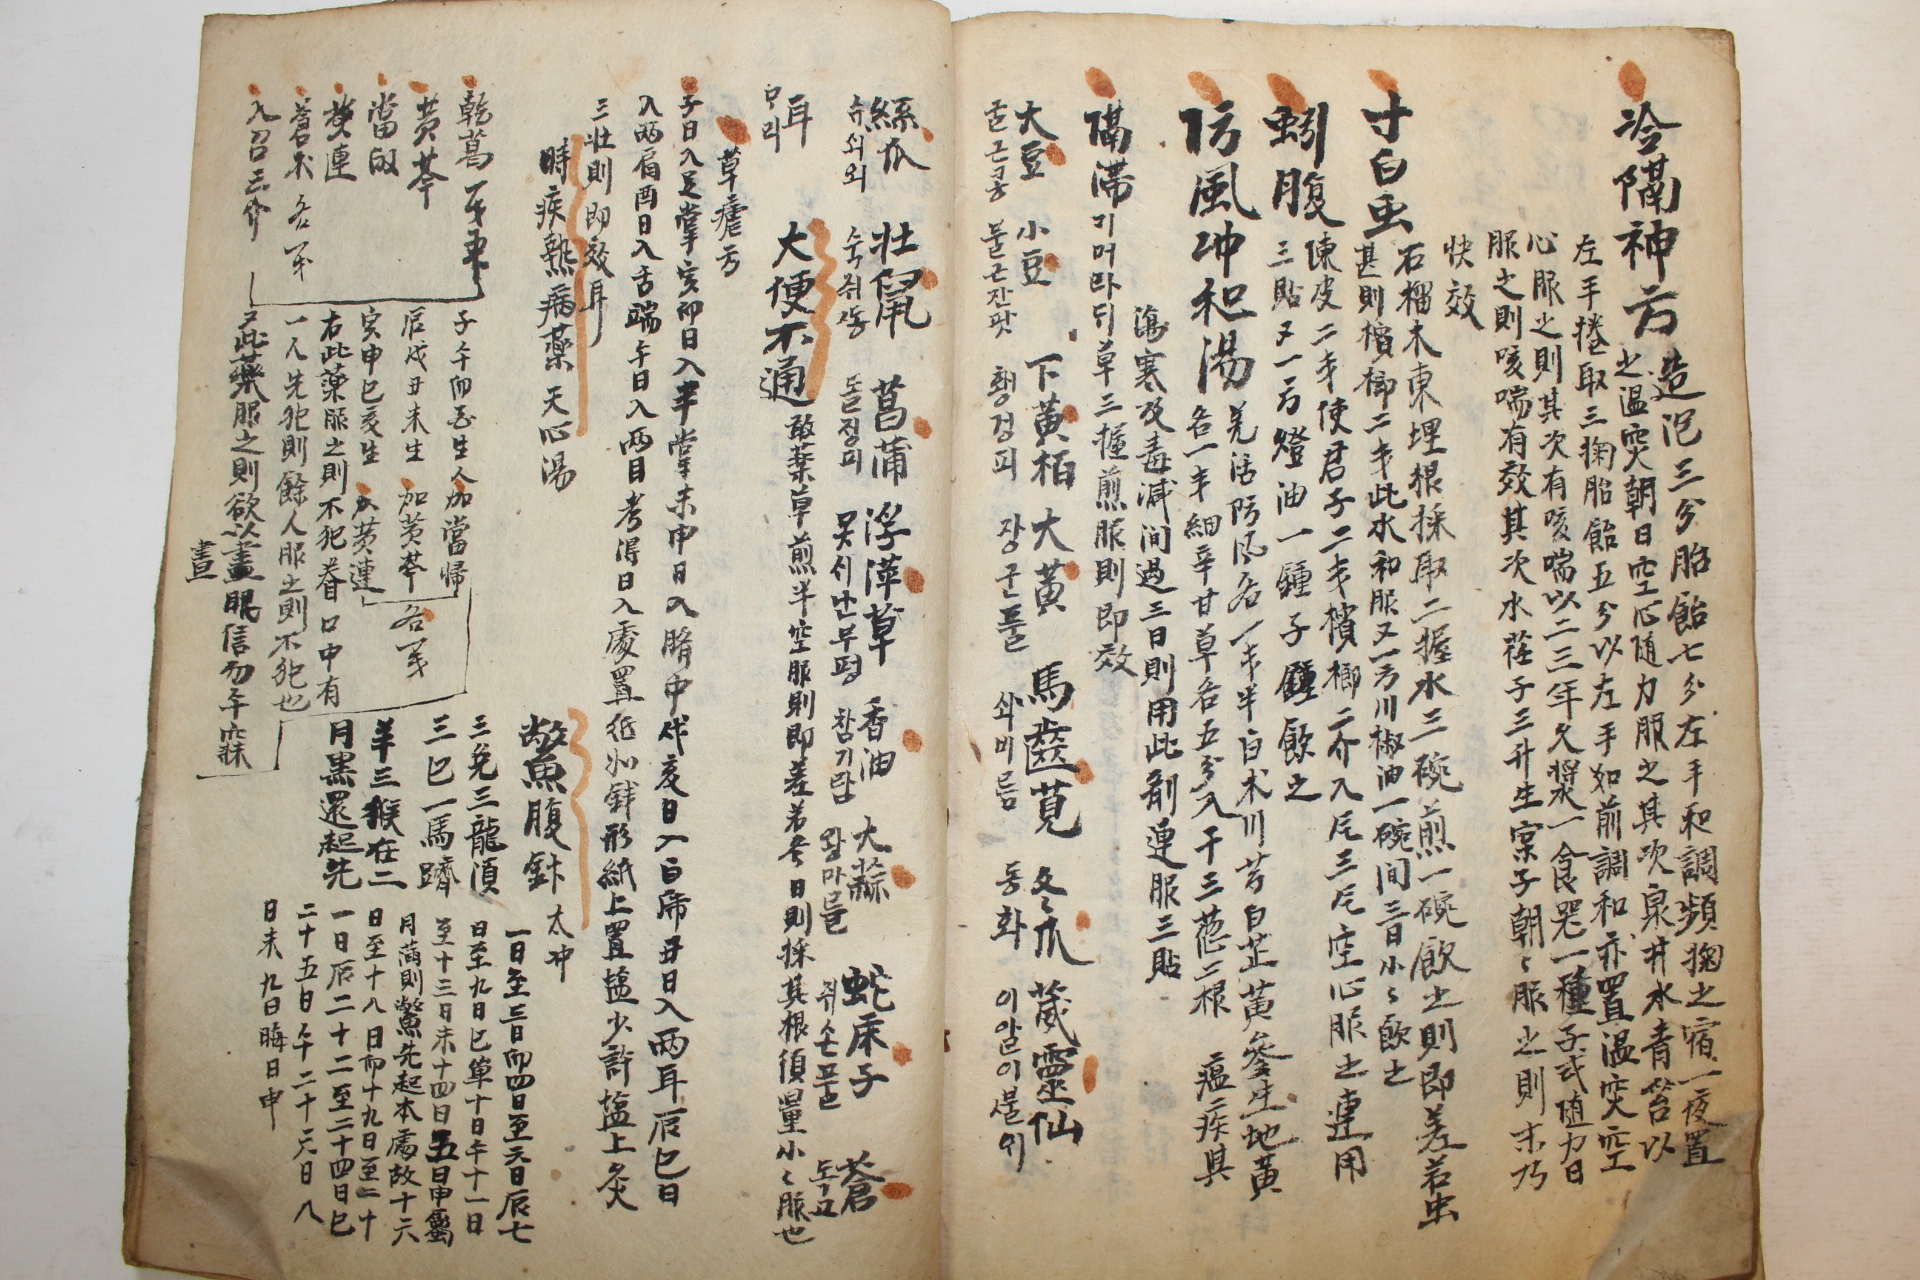 冷隔神方
造泡三分胎飴七分左手和調頻掬之宿一夜置
之温突朝日空心随力服之其次泉井水青苔以
左手捲取三掬胎飴五分以左手如前調和亦置温突空
心服之則其次有咳喘以二三年久漿一食器一種子式随力日
服之則咳喘有效其次水荏子三升生室子朝々服之則
快效
寸白虫
石榴木東埋根採取二握水三碗煎一碗飮之則即差若虫
甚則檳榔二戔此水和服又一方川椒油一碗間三日小々飮之
蚓腹
陳皮二戔使君子二戔檳榔二介入尾三尾空心服之連用
三貼又一方燈油一鍾子鍾飮之
防風冲和湯
羌活防風各一戔半白朮川芎白芷黃芩生地黃
各一戔細辛甘草各五分入干三葱二根 瘟疾具
傷寒及毒減間過三日則用此劑連服三貼
隔滯
기머라디草三握煎服則即效
大豆 小豆 下黃栢 大黃 馬齒莧 冬瓜 葳靈仙
굴근콩 불근잔팟 황경피 장군풀 쇠비름 동화 이알이불위
絲瓜 壯鼠 菖蒲 浮萍草 香油 大蒜 蛇床子 蒼
슈쇠외 숙쥐동 돌장피 못시난부평 참기람 왕마믈 쥐손풀 독고
耳
마리
大便不通
敢藥草煎半空服則即差若冬日則採其根須量小々服也
草瘧方
子日入足掌亥卯日入半掌未申日入臍中戌亥日入白席丑日入兩耳辰巳日
入兩肩酉日入舌端午日入兩目考得日入處置紙如錢形紙上置塩少許塩上灸
三壯則即效耳
時疾熱病藥 天心湯
乾葛
黃芩
當皈
黃連
蒼朮 各一戔
入召三介
子午卯酉生人加當歸
辰戌丑未生 加黃芩 各一戔
寅申巳亥生 加黃連
右此藥服之則不犯眷口中有
一人先犯則餘人服之則不犯也
此藥服之則欲以晝眠信勿午寐
晝
鱉魚腹針 太冲
三兔三龍湏
三巳一馬躋
羊三猴在二
月黑還起先
一日至三日卯四日至六日辰七
日至九日巳第十日午十一日
至十三日未十四日五日申屬
月滿則鱉先起本處故十六
日至十八日卯十九日至二十
一日辰二十二至二十四日巳
二十五日午二十六日八
日未九日晦日申